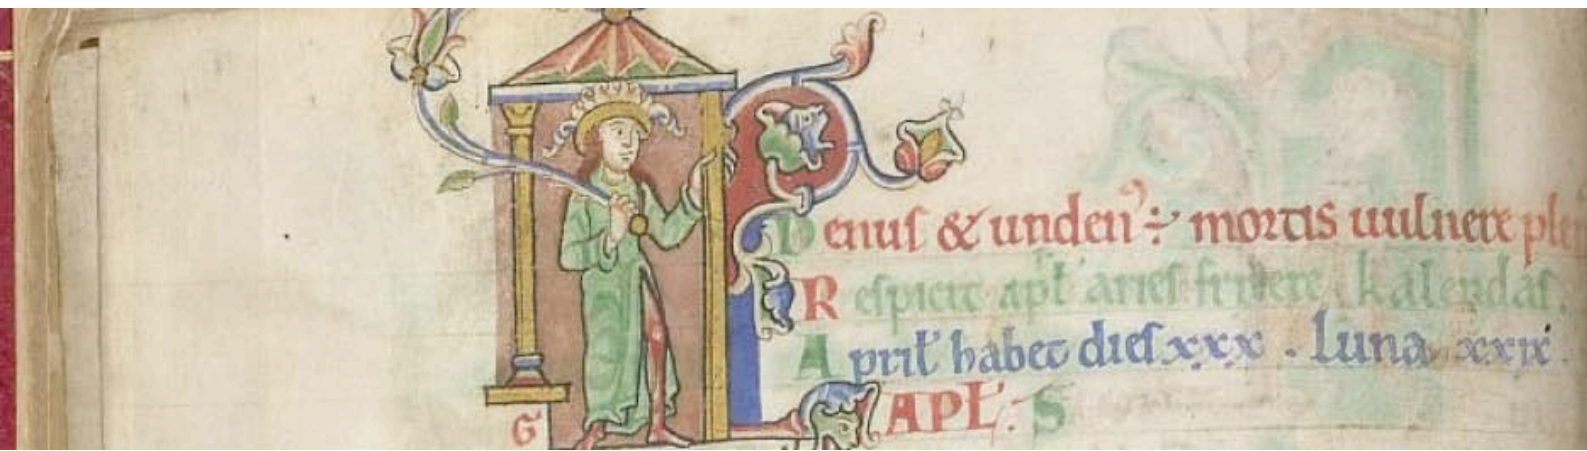 Denuſ & unden᷒ ÷ mortis uulnere ple
Reſpicit apł arieſ frixee kalendaſ.
Aprił habet dieſ xxx. luna xxix.
G KL APŁ. S